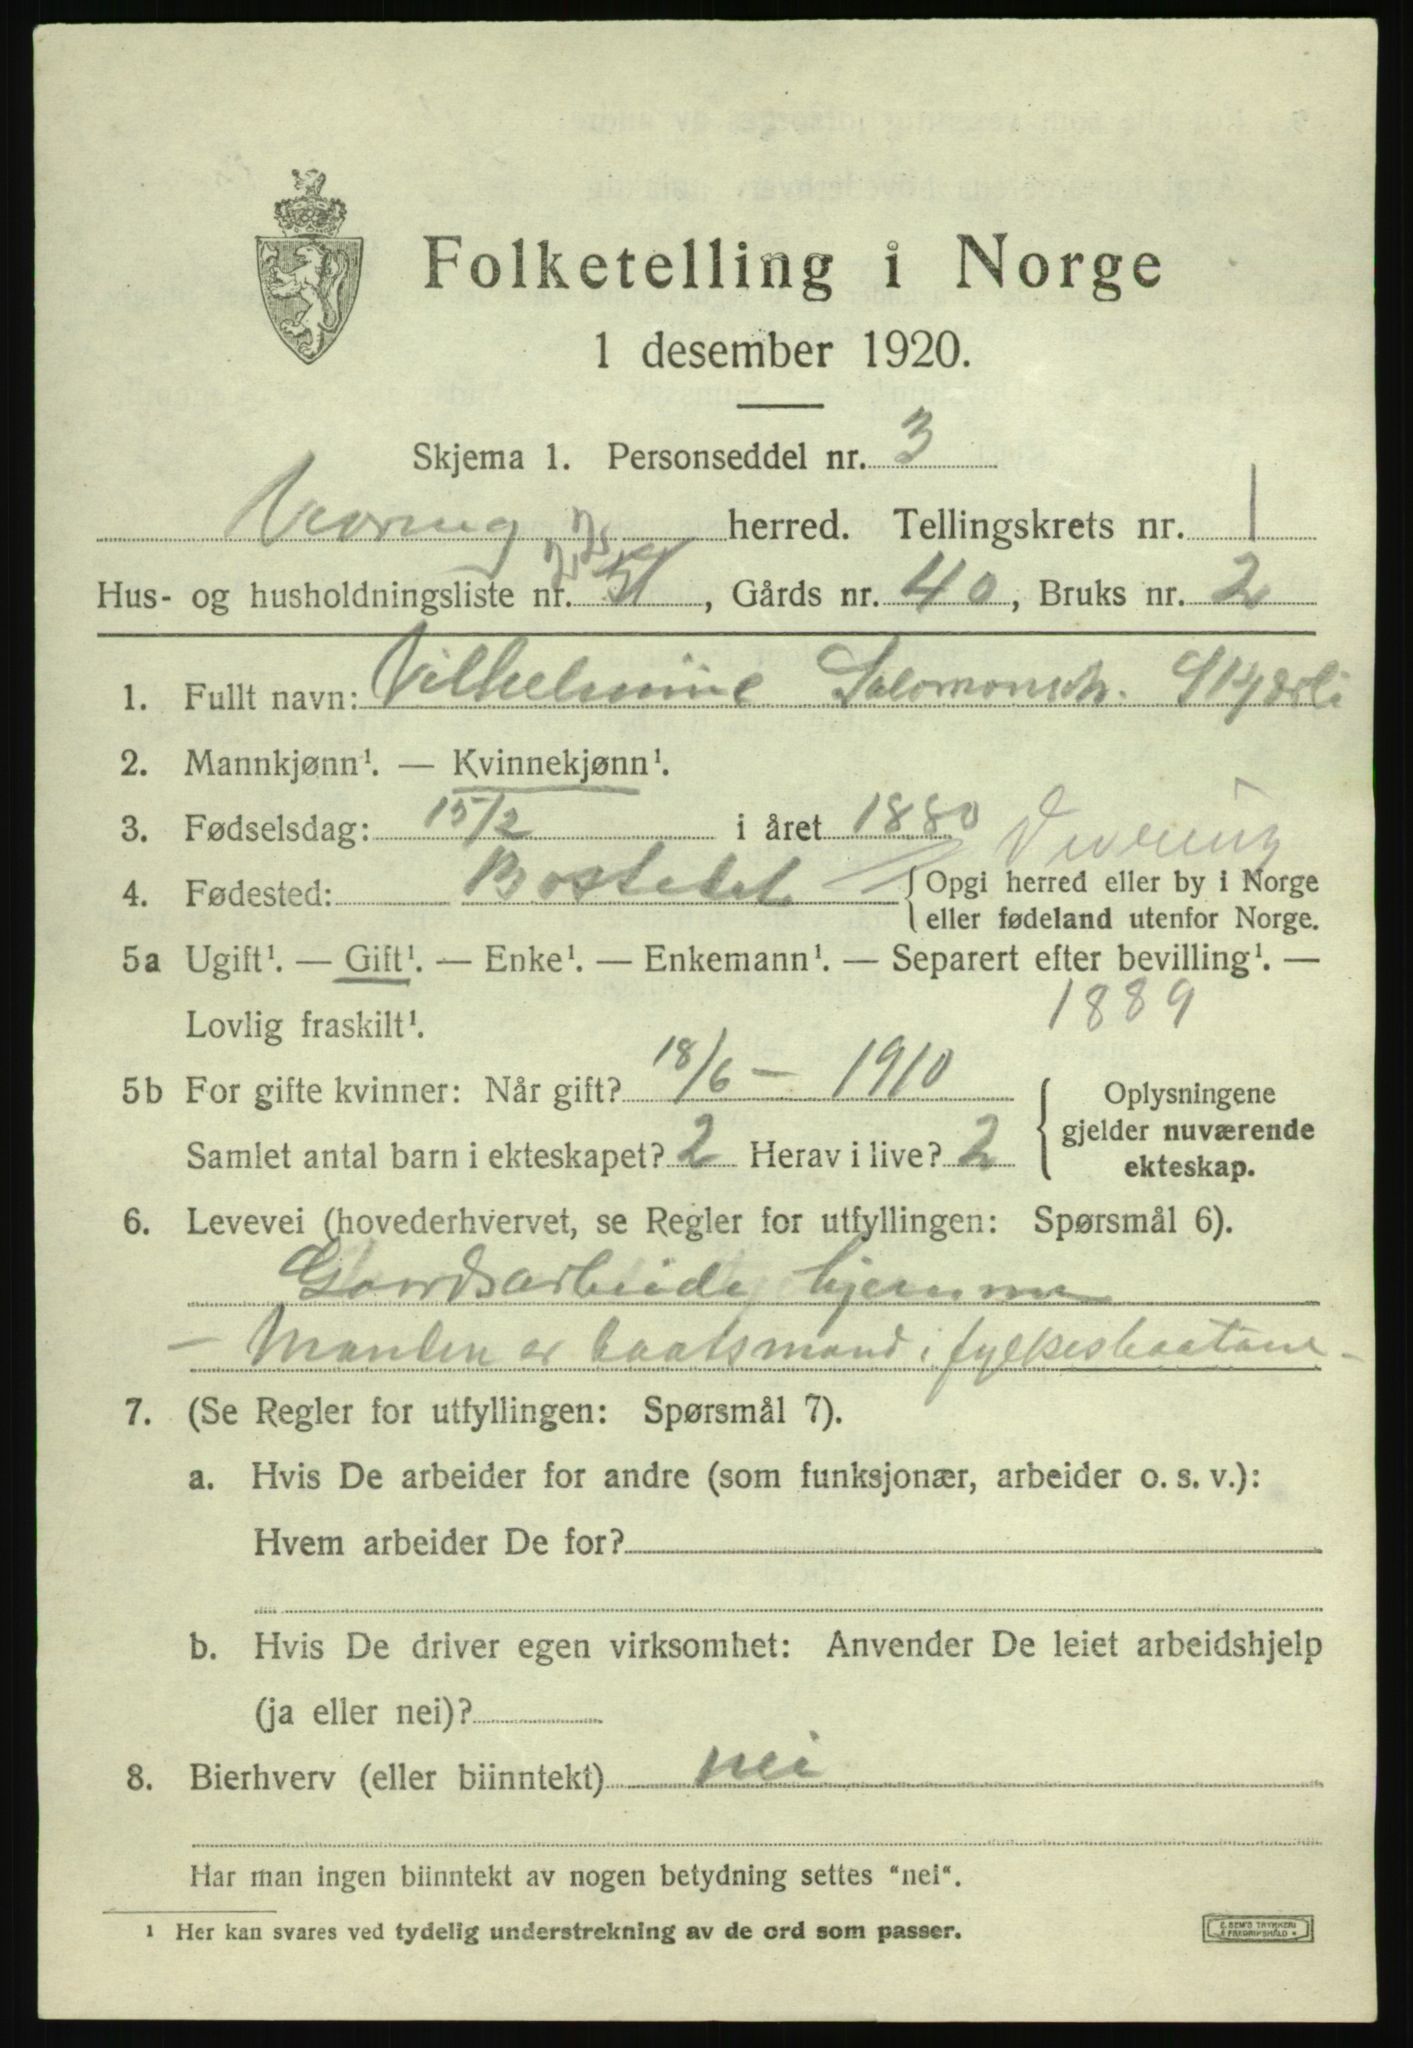 Folketelling i Norge
1 desember 1920.
Skjema 1. Personseddel nr. 3
Vevring herred. Tellingskrets nr. 1
Hus- og husholdningsliste nr. 51, Gårds nr. 40, Bruks nr. 2
1. Fullt navn: Vilhelmine Salomonsdt. Skjærli
2. Mannkjønn¹. — Kvinnekjønn¹.
3. Fødselsdag: 15/2 i året 1880
4. Fødested: Bostedet Vevring {Opgi herred eller by i Norge
eller fødeland utenfor Norge.
5a Ugift¹. — Gift¹. — Enke¹. — Enkemann¹. — Separert efter bevilling¹. —
Lovlig fraskilt¹. 1889
5b For gifte kvinner: Når gift? 18/6 – 1910 { Oplysningene
gjelder nuværende
Samlet antal barn i ekteskapet? 2 Herav i live? 2 ekteskap.
6. Levevei (hovederhvervet, se Regler for utfyllingen: Spørsmål 6).
Gaardsarbeide hjemme
– Manden er baatsmand i fylkesbaatane –
7. (Se Regler for utfyllingen: Spørsmål 7).
a. Hvis De arbeider for andre (som funksjonær, arbeider o. s. v.):
Hvem arbeider De for?
b. Hvis De driver egen virksomhet: Anvender De leiet arbeidshjelp
(ja eller nei)?
8. Bierhverv (eller biinntekt) nei
Har man ingen biinntekt av nogen betydning settes "nei".
¹ Her kan svares ved tydelig understrekning av de ord som passer.
E. SEM'S TRYKKERI
FREDRIKSHALD